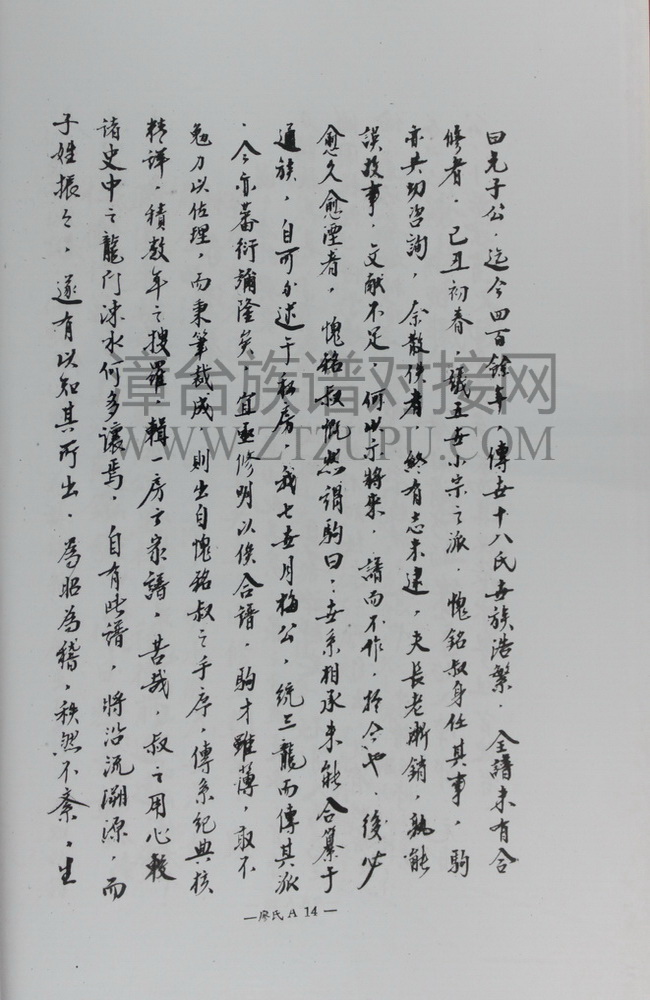 曰光子公．迄今四百餘年，傳世十八氏世族浩繁．全譜未有合
修者．己丑初春，議五世小宗之派．愧銘叔身任其事，駒
亦共切咨詢，余散佚者，終有志未逮，夫長老漸銷，孰能
誤故事．文献不足，何以示將來．譜而不作，於今也．後必
愈久愈湮者，愧銘叔慨然謂駒曰：世系相承未能合纂于
通族，自可分述于私房，我七世月梅公，統三龍而傳其派
．今亦蕃衍彌隆矣，宜亟修明以俟合譜，駒才雖薄，敢不
勉力以佐理，而秉筆裁成，則出自愧銘叔之手序，傳系紀典核
精詳．積数年之搜羅，輯一房之家譜，苦哉，叔之用心較
諸史中之龍門涑水何多讓焉．自有此譜，將沿流溯源，而
子姓振々，遂有以知其所出．為昭為穆，秩然不紊，生
—廖氏 A 14 —
漳台族谱对接网
WWW.ZTZUPU.COM